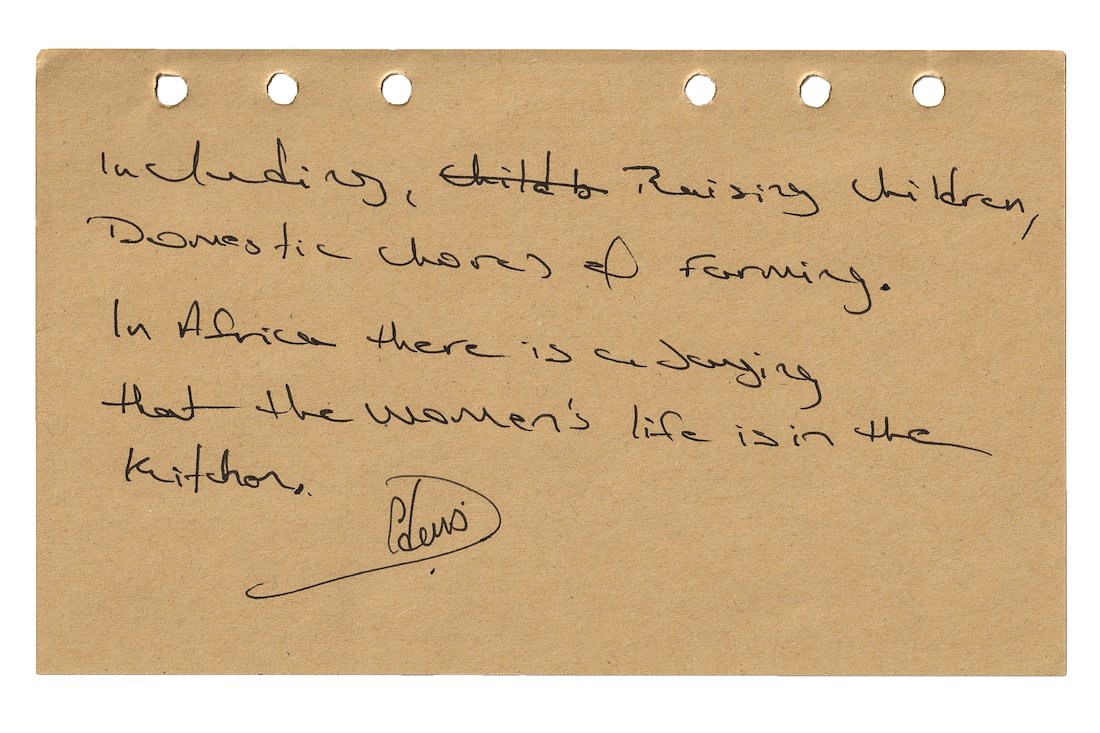 Including, ~~Childb~~ Raising children,
Domestic chores & Farming.
In Africa there is a saying
that the women's life is in the
Kitchen.